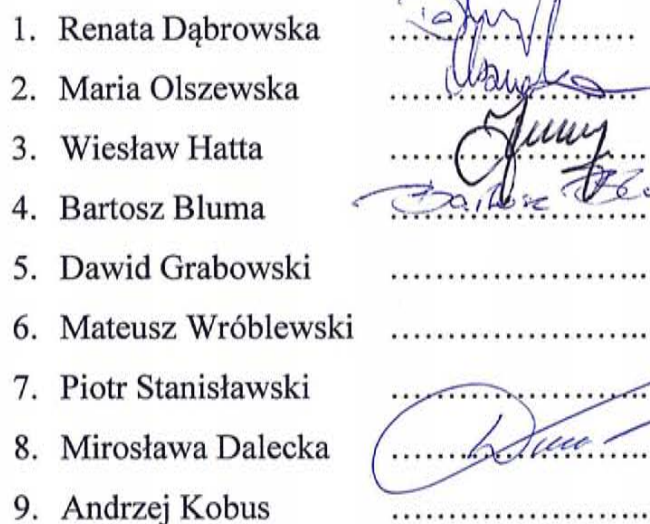 1. Renata Dąbrowska ..............................
2. Maria Olszewska ..............................
3. Wiesław Hatta ..............................
4. Bartosz Bluma Bartosz ..............................
5. Dawid Grabowski ..............................
6. Mateusz Wróblewski ..............................
7. Piotr Stanisławski ..............................
8. Mirosława Dalecka ..............................
9. Andrzej Kobus ..............................